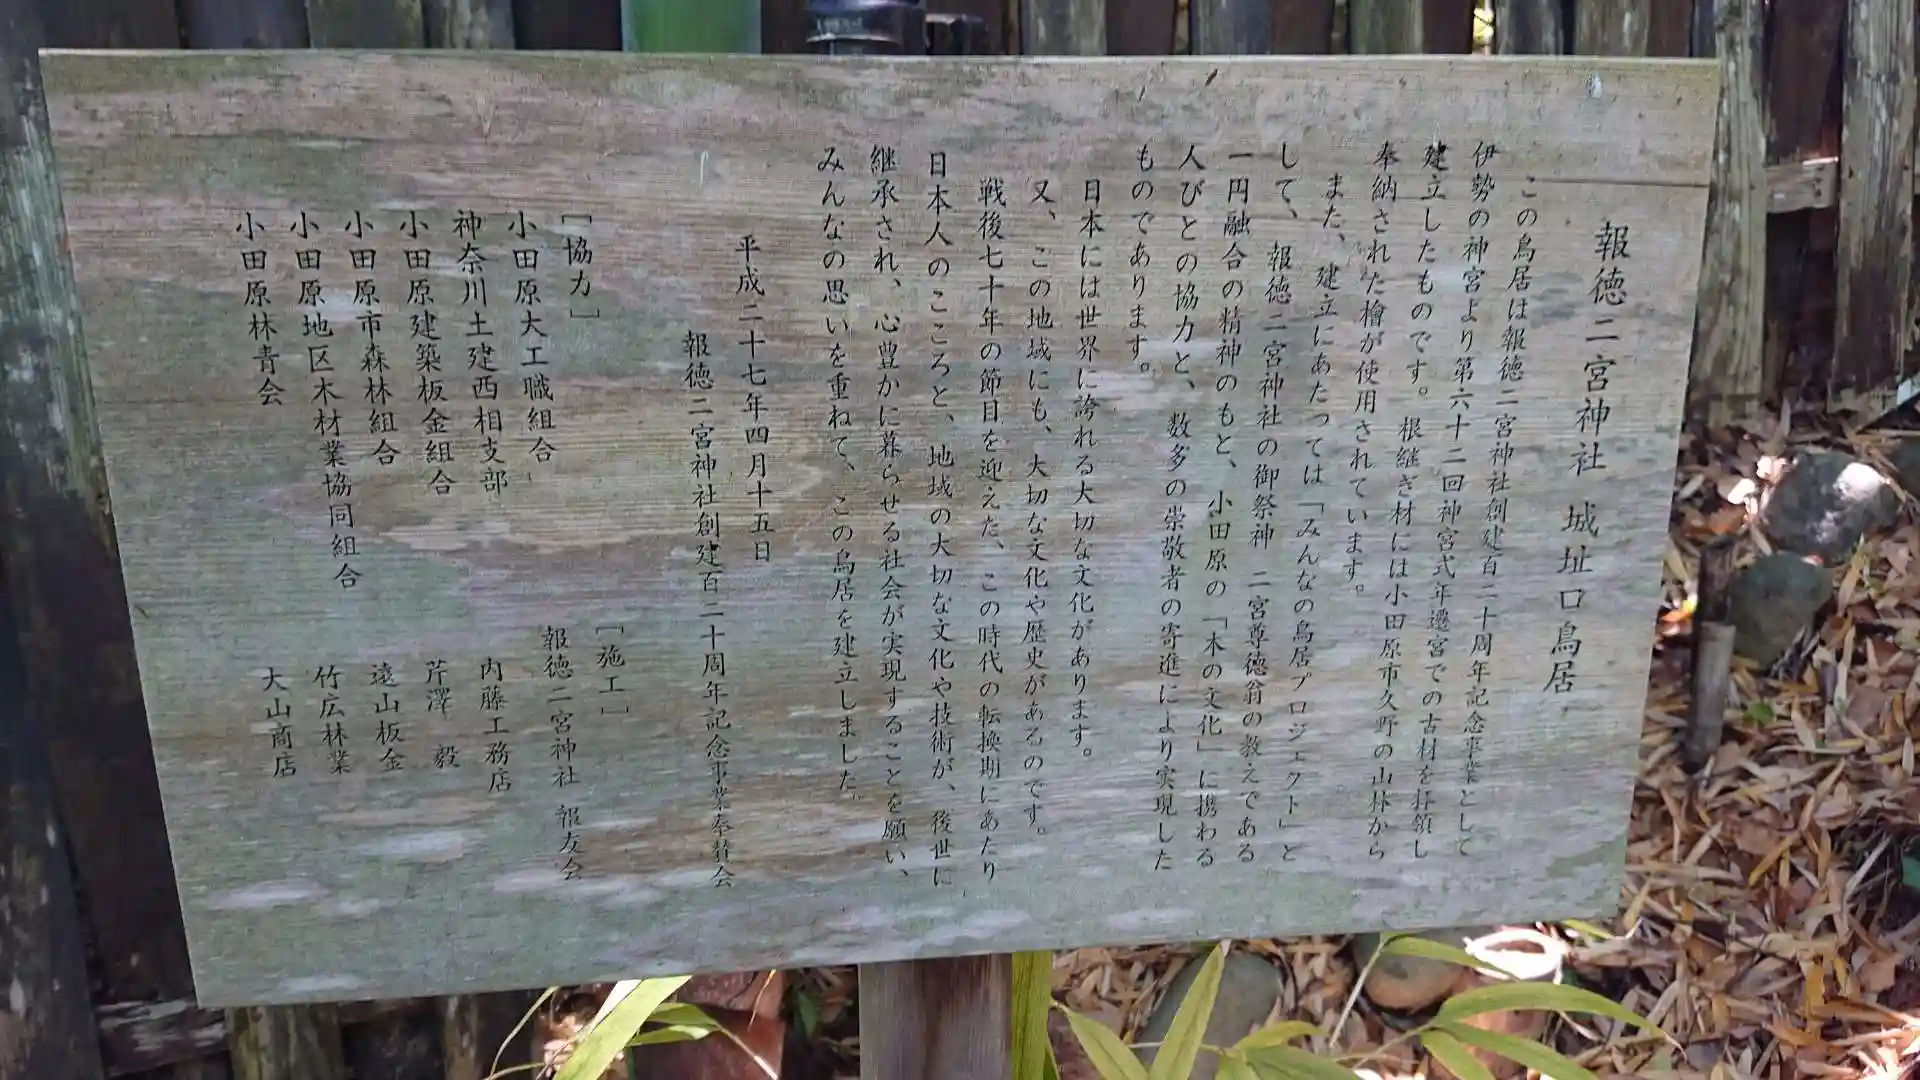 報徳二宮神社 城址口鳥居
この鳥居は報徳二宮神社創建百二十周年記念事業として
伊勢の神宮より第六十二回神宮式年遷宮での古材を拝領し
建立したものです。根継ぎ材には小田原市久野の山林から
奉納された檜が使用されています。
また、建立にあたっては「みんなの鳥居プロジェクト」と
して、報徳二宮神社の御祭神 二宮尊徳翁の教えである
一円融合の精神のもと、小田原の「木の文化」に携わる
人びとの協力と、数多の崇敬者の寄進により実現した
ものであります。
日本には世界に誇れる大切な文化があります。
又、この地域にも、大切な文化や歴史があるのです。
戦後七十年の節目を迎えた、この時代の転換期にあたり
日本人のこころと、地域の大切な文化や技術が、後世に
継承され、心豊かに暮らせる社会が実現することを願い、
みんなの思いを重ねて、この鳥居を建立しました。
平成二十七年四月十五日
報徳二宮神社創建百二十周年記念事業奉賛会
[協力]
小田原大工職組合
神奈川土建西相支部
小田原建築板金組合
小田原市森林組合
小田原地区木材業協同組合
小田原林青会
[施工]
報徳二宮神社 報友会
内藤工務店
芹澤 毅
遠山板金
竹広林業
大山商店